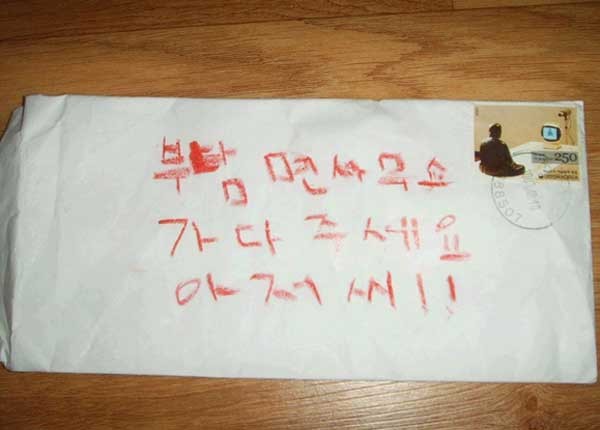 부탐 면사무소
가다 주세요
아저씨!!
250